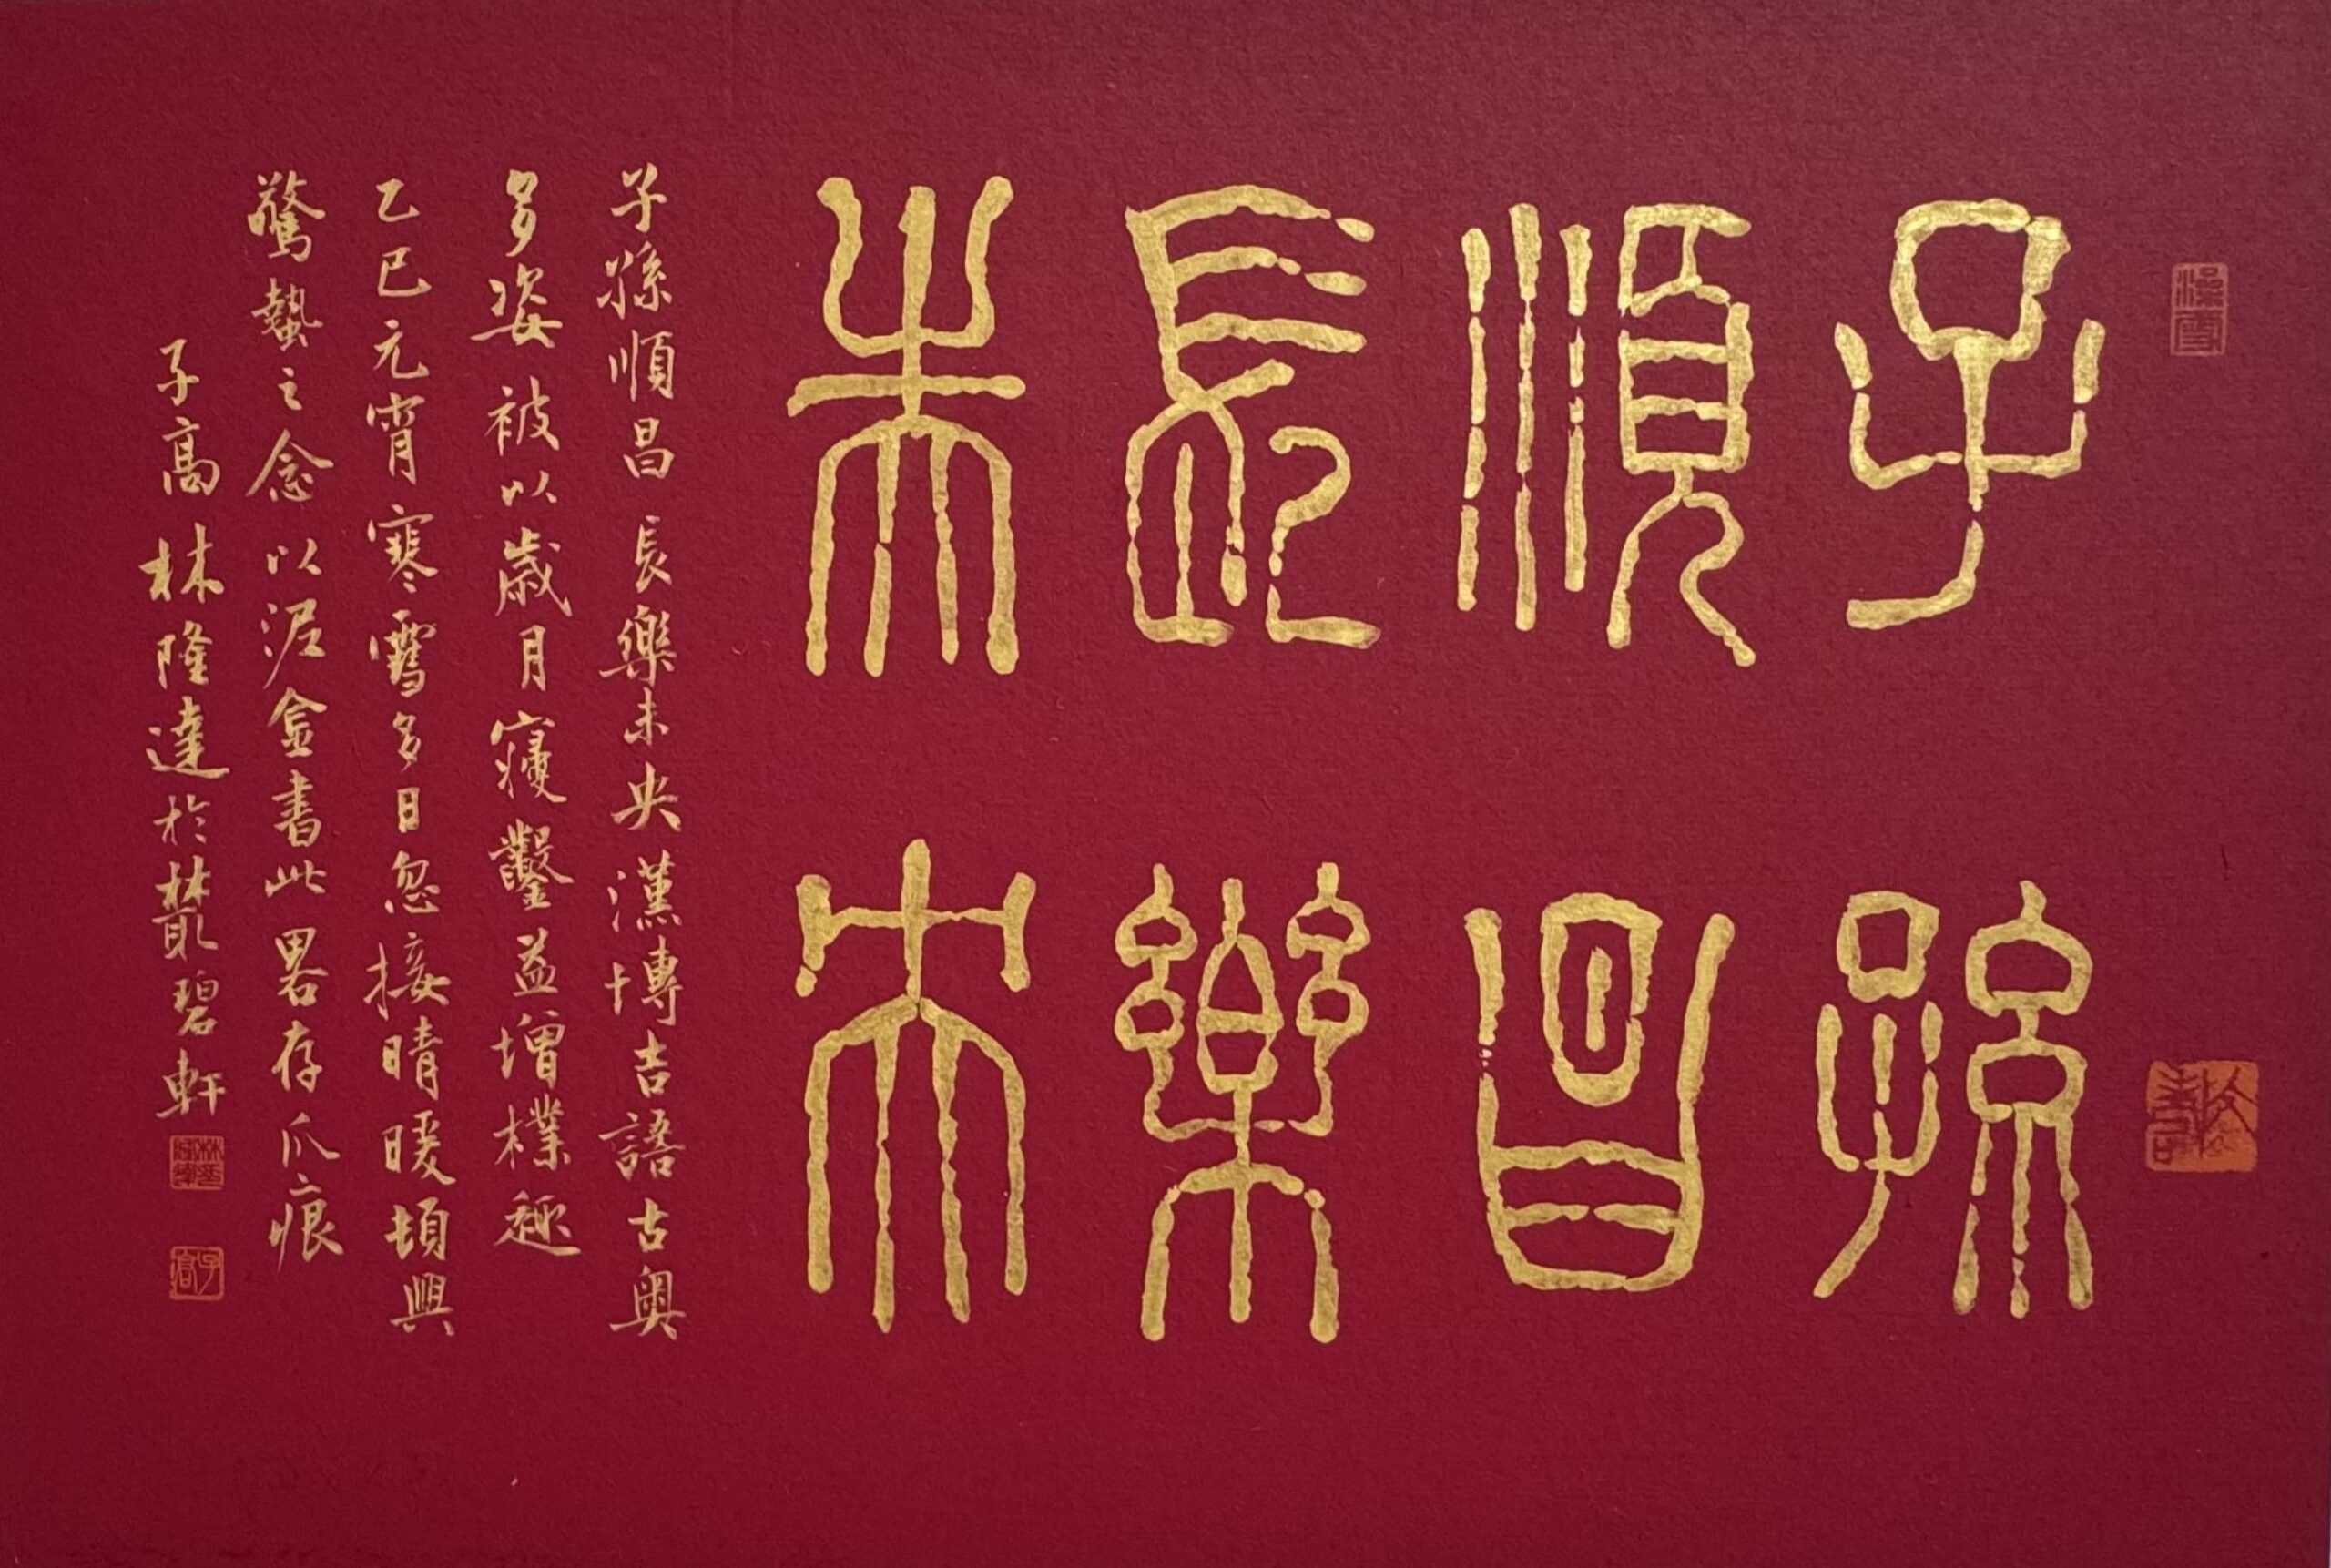 子孫
順昌
長樂
未央
子孫順昌長樂未央漢塼吉語古奧
多姿被以歲月寖鑿益增樸趣
乙巳元宵寒雪多日忽接晴暖頓興
驚蟄之念以泥金書此畧存爪痕
子高林隆達於叢碧軒
澡雪
子高